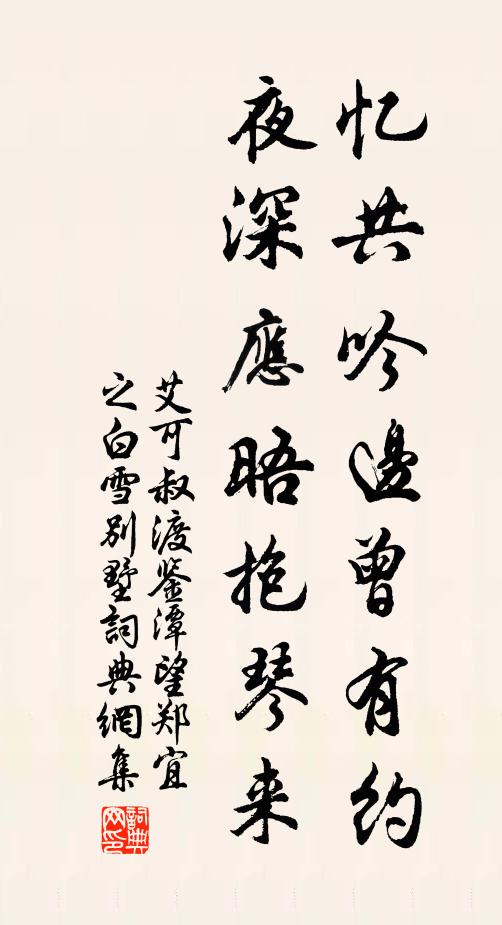 忆共吟邊曾有约
夜深應晤抱琴来
艾可叔渡鉴潭望郑宜
之白雪别墅詞典網集
詞典
网印